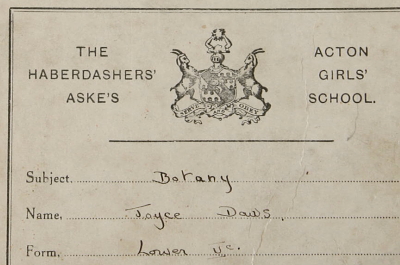 THE HABERDASHERS' ASKE'S
ACTON GIRLS' SCHOOL.
SERVE AND OBEY
Subject, Botany
Name, Joyce Daws.
Form, Lower Vc.